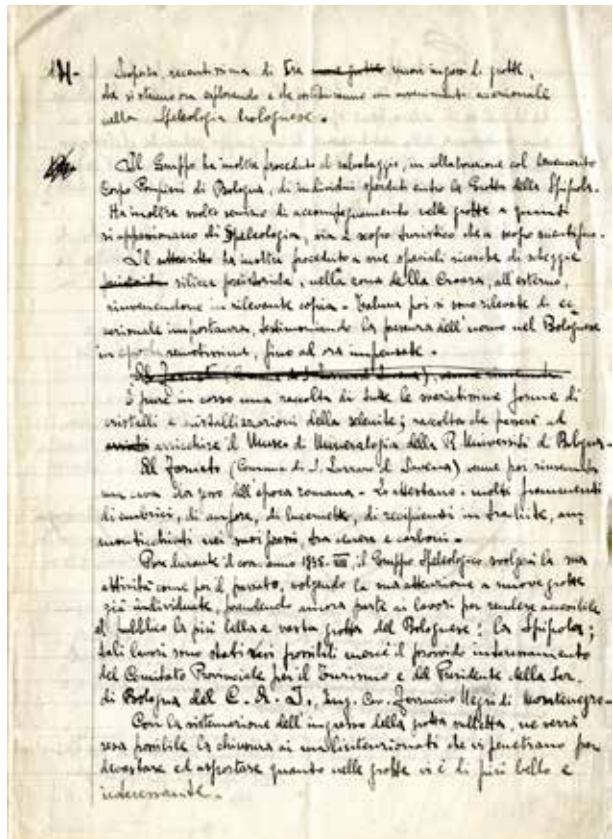 14 - Scoperta recentissima di tre nuovi ingressi di grotte,
che si stanno ora esplorando e che costituiranno un avvenimento eccezionale
nella Speleologia bolognese.
Il Gruppo ha inoltre proceduto al salvataggio, in collaborazione col benemerito
Corpo Pompieri di Bologna, di individui sperduti entro la Grotta della Spipola.
Ha inoltre svolto servizio di accompagnamento nelle grotte a quanti
si appassionano di Speleologia, sia a scopo turistico che a scopo scientifico.
Il sottoscritto ha inoltre proceduto a sue speciali ricerche di schegge
silicee preistoriche, nella zona della Croara, all'esterno,
rinvenendone in rilevante copia. Talune poi si sono rilevate di ec-
cezionale importanza, testimoniando la presenza dell'uomo nel Bolognese
in epoche remotissime, fino ad ora impensate.
È pure in corso una raccolta di tutte le svariatissime forme di
cristalli e cristallizzazioni della selenite; raccolta che passerà ad
arricchire il Museo di Mineralogia della R. Università di Bologna.
Al Farneto (Comune di S. Lazzaro di Savena) venne poi rinvenuta
una dell'epoca romana. Lo attestano molti frammenti
di embrici, di anfore, di lucernette, di recipienti in trachite, am-
monticchiati nei suoi pressi, tra cenere e carboni.
Pure durante il corr. anno 1935. XIII il Gruppo Speleologico svolgerà la sua
attività come per il passato, volgendo la sua attenzione a nuove grotte
già individuate, prendendo ancora parte ai lavori per rendere accessibile
al pubblico la più bella e vasta grotta del Bolognese: la Spipola;
tali lavori sono stati resi possibili mercè il provvido interessamento
del Comitato Provinciale per il Turismo e del Presidente della Sez.
di Bologna del C. A. I., Ing. Cav. Ferruccio Negri di Montenegro.
Con la sistemazione dell'ingresso della grotta suddetta, ne verrà
resa possibile la chiusura ai malintenzionati che vi penetrano per
devastare ed asportare quanto nelle grotte vi è di più bello e
interessante.